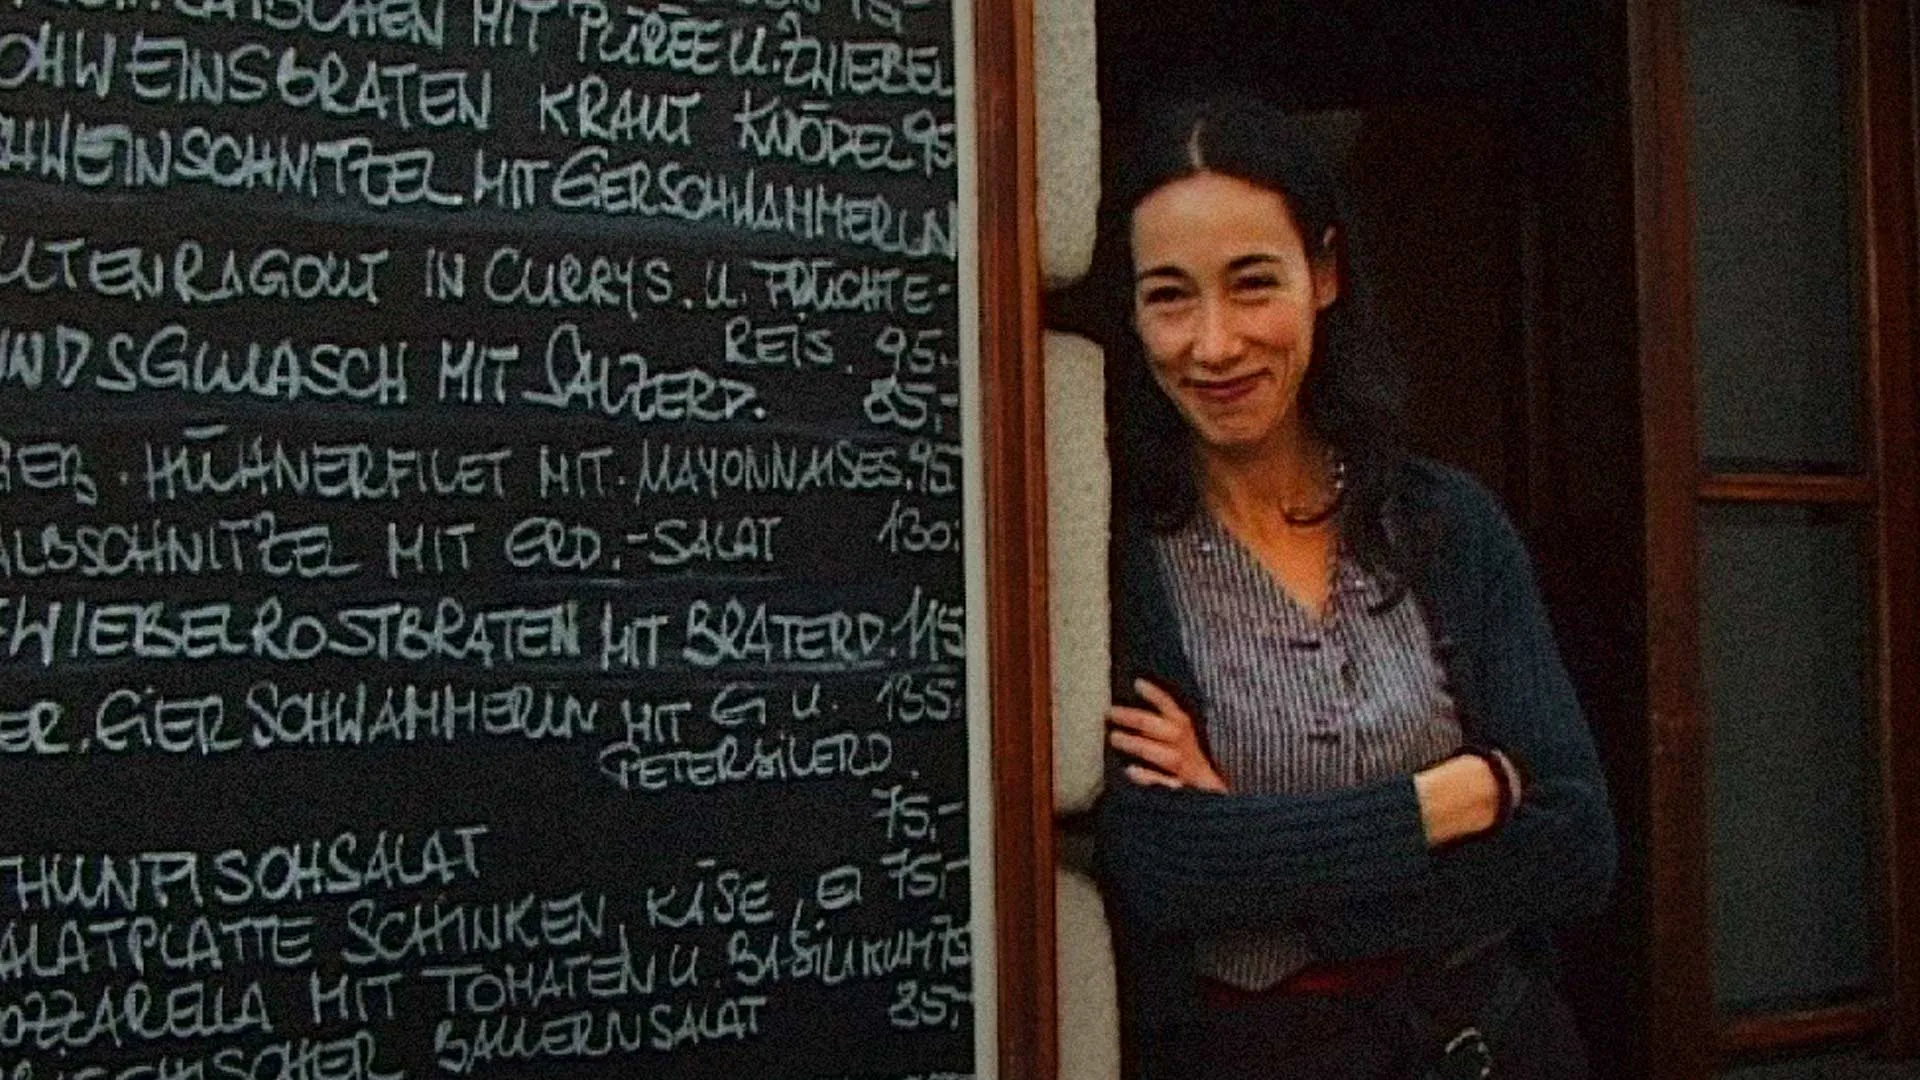 MIT PÜREE U. ZWIEBEL
SCHWEINSBRATEN KRAUT KNÖDEL 95
SCHWEINSCHNITZEL MIT EIERSCHWAMMERLN
RAGOUT IN CURRYS. U. FRÜCHTE-
REIS. 95.-
MIT SALZERD. 85,-
HÜHNERFILET MIT. MAYONNAISES. 95
ALBSCHNITZEL MIT ERD.-SALAT 130.
ZWIEBELROSTBRATEN MIT BRATERD. 115
ER. EIERSCHWAMMERLN MIT G U. 135.
PETERSILERD.
75,-
THUNFISCHSALAT
ALATPLATTE SCHINKEN, KÄSE, EI 75,-
OZZARELLA MIT TOMATEN U. BASILIKUM 75
BAUERNSALAT 85,-